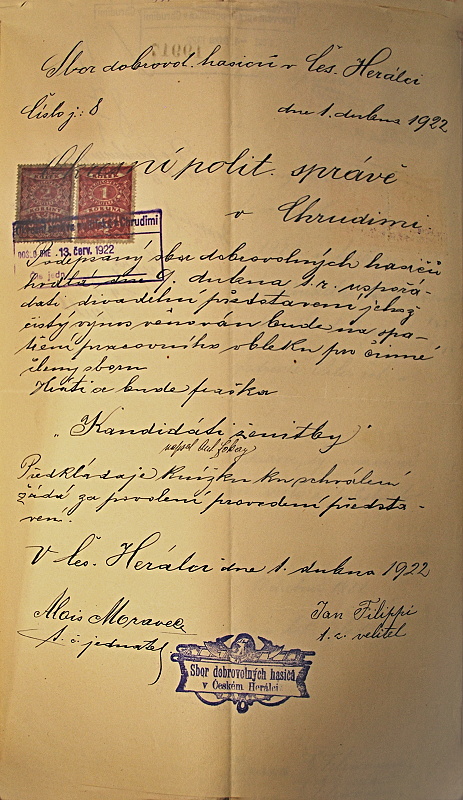 Sbor dobrovol. hasičů v Čes. Herálci
Číslo j.: 8 dne 1. dubna 1922
polit. správě
v Chrudimi
1
KORUNA
Chrudimi
DOŠLO DNE 13. červ. 1922
Podepsaný sbor dobrovolných hasičů
hodlá dne 9 dubna t. r. uspořá-
dati divadelní představení jehož
čistý výnos věnován bude na opa-
tření pracovního obleku pro činné
členy sboru
Hráti se bude fraška
„Kandidáti ženitby"
napsal
Předkládaje knížku ku schválení
žádá za povolení provedení předsta-
vení.
V Čes. Herálci dne 1. dubna 1922
Alois Moravec Jan Filippi
t. č. jednatel t. č. velitel
Sbor dobrovolných hasičů
v Českém Herálci